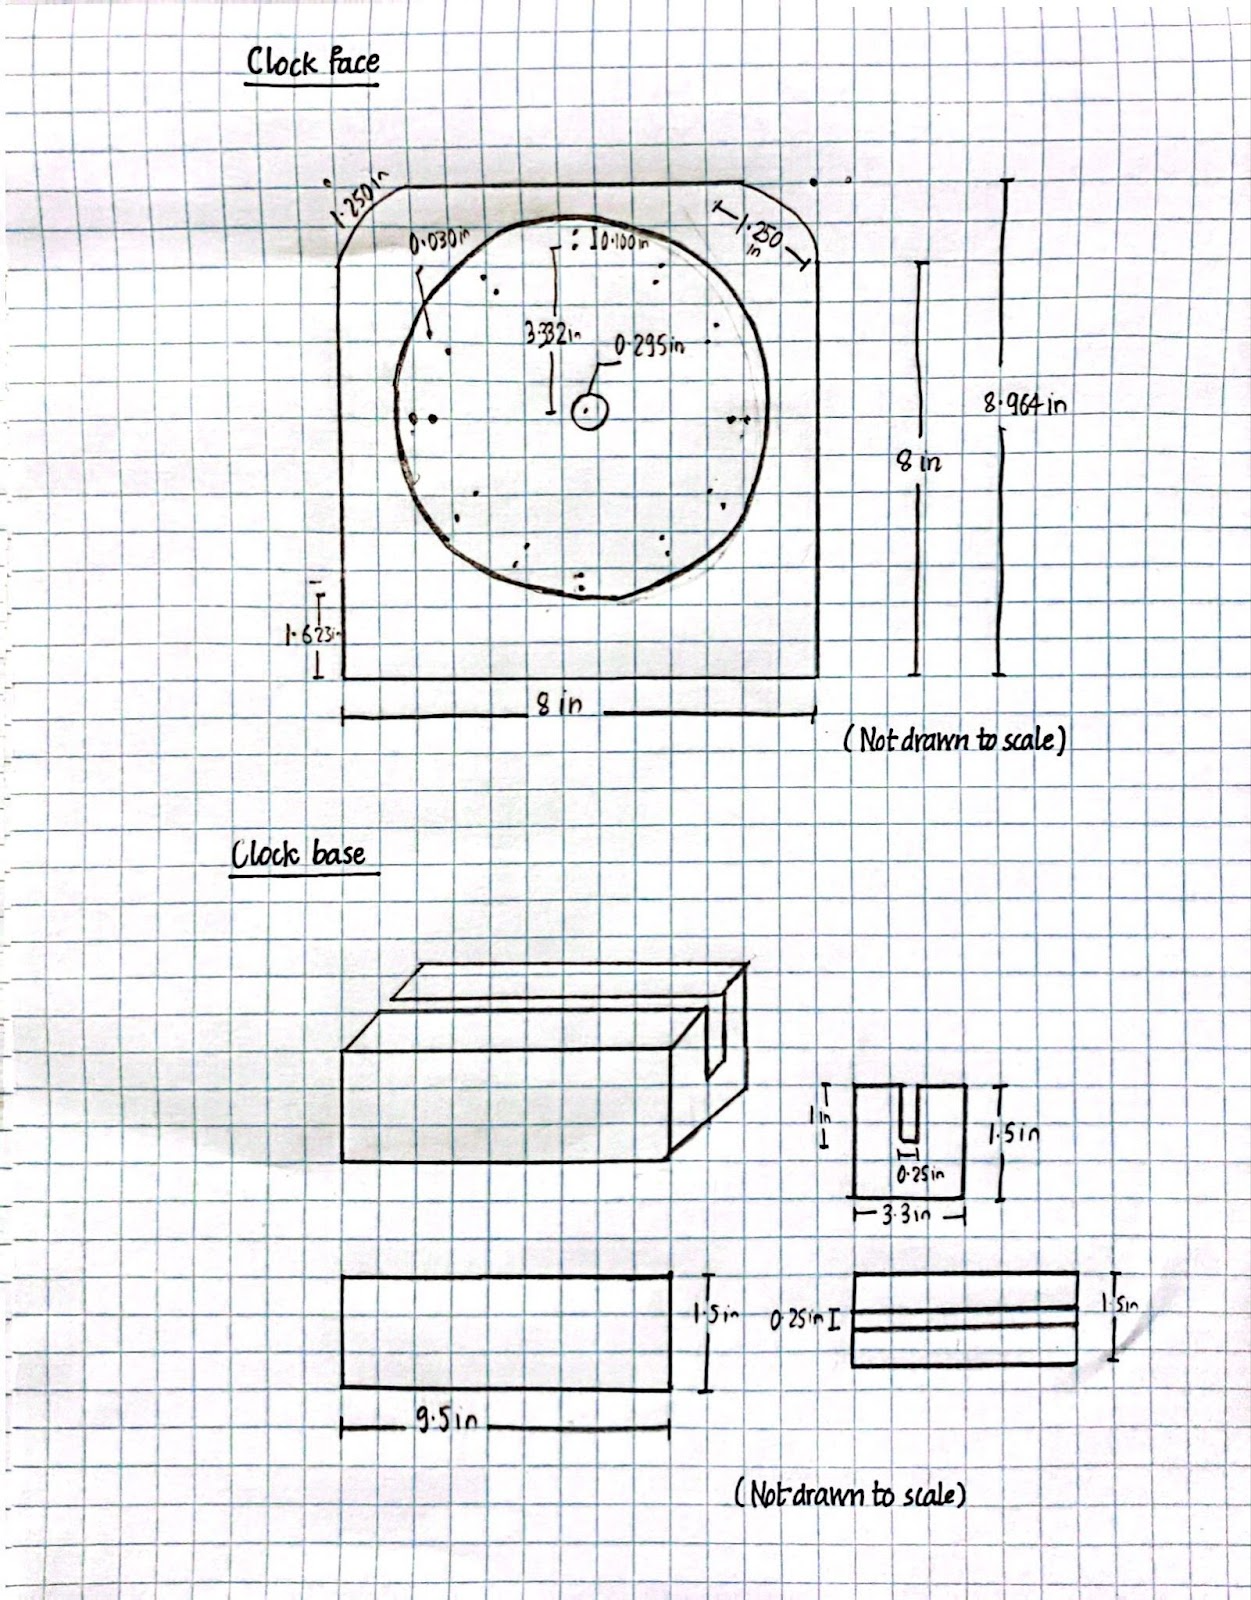 Clock face
1.250in
0.030in
0.100in
1.250
in
3.332in
0.295in
8.964in
8 in
1.623in
8 in
(Not drawn to scale)
Clock base
1in
1.5in
0.25in
3.3in
1.5in
0.25in
1.5in
9.5in
(Not drawn to scale)